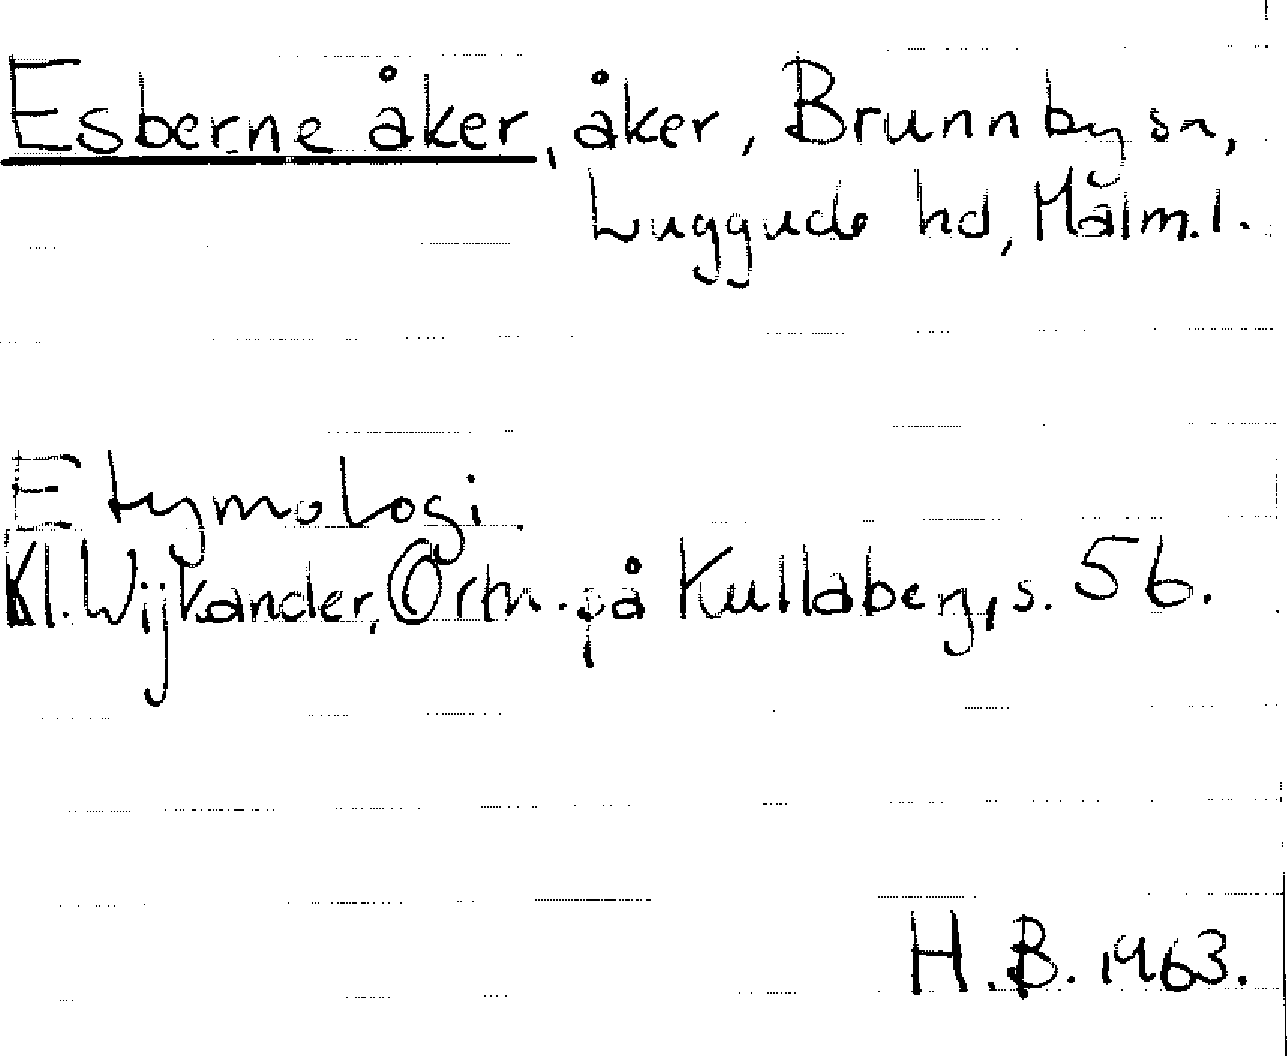 Esberne åker, åker, Brunnby sn,
Luggude hd, Malm.l.
Etymologi
Kl. Wijkander, Ortn. på Kullaberg, s. 56.
H.B. 1963.